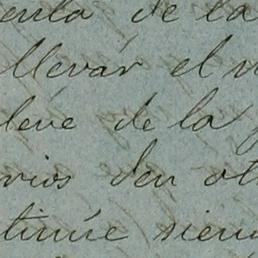 enta de la
llevar el
leve de la
rios den ot
tinúe siem